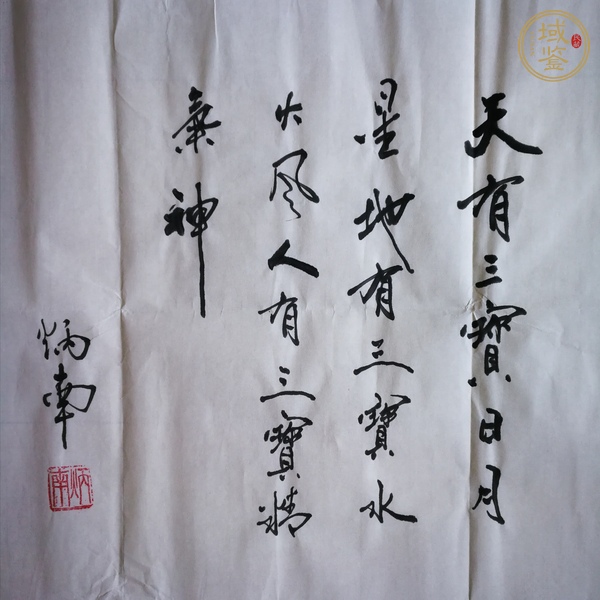 天有三寶日月
星地有三寶水
火风人有三寶精
氣神
炳南
炳南
域鉴